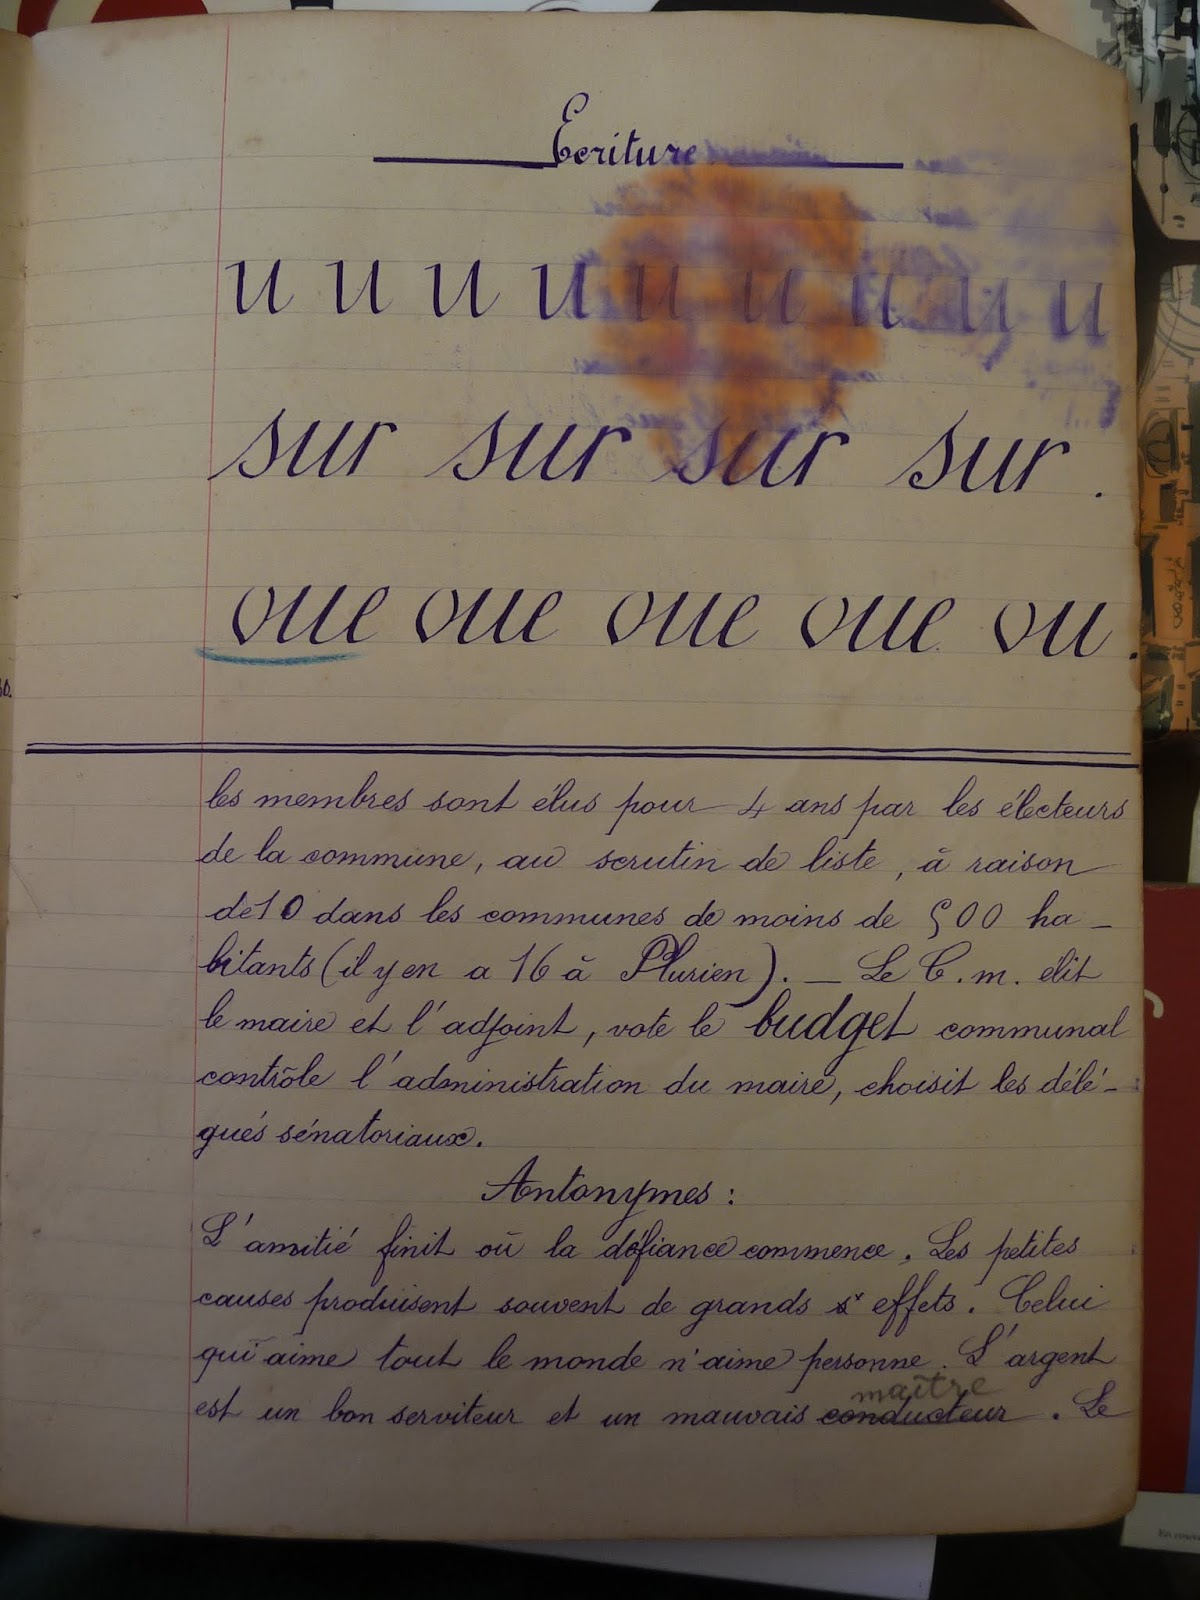 Ecriture
u u u u u u u u u
sur sur sur sur .
oue oue oue oue ou .
les membres sont élus pour 4 ans par les électeurs
de la commune, au scrutin de liste, à raison
de 10 dans les communes de moins de 500 ha-
bitants (il y en a 16 à Plurien). _ Le C. m. élit
le maire et l'adjoint, vote le budget communal
contrôle l'administration du maire, choisit les délé-
gués sénatoriaux.
Antonymes :
L'amitié finit où la défiance commence. Les petites
causes produisent souvent de grands effets. Celui
qui aime tout le monde n'aime personne. L'argent
maître
est un bon serviteur et un mauvais conducteur. Le